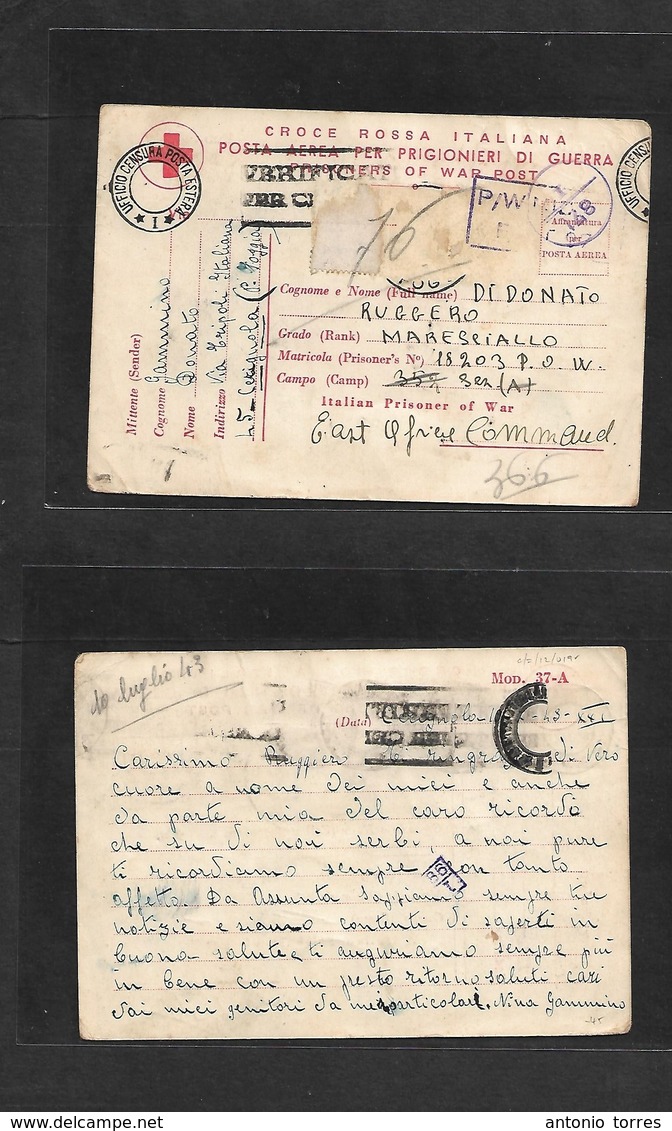 CROCE ROSSA ITALIANA
POSTA AEREA PER PRIGIONIERI DI GUERRA
PRISONERS OF WAR POST
UFFICIO CENSURA POSTA ESTERA
1
UFFICIO CENSU
P/W
Affrancatura
per
POSTA AEREA
76
Cognome e Nome (Full name) DI DONATO
RUGGERO
Grado (Rank) MARESCIALLO
Matricola (Prisoner's No) 18203 P.O.W.
Campo (Camp) 359
Italian Prisoner of War
East Africa Command.
366
Mittente (Sender)
Cognome Gammino
Nome Donato
Indirizzo Via Tripoli Italiana
45 Cerignola (P. Foggia)
10 luglio 43
MOD. 37-A
(Data) Cerignola
Carissimo Ruggiero Ti ringrazio di vero
cuore a nome dei miei e anche
da parte mia del caro ricordo
che su di noi serbi, a noi pure
ti ricordiamo sempre con tanto
affetto. Da Assunta sappiamo sempre tue
notizie e siamo contenti di saperti in
buona salute e ti auguriamo sempre più
in bene con un presto ritorno saluti cari
dai miei genitori da me particolari. Nina Gammino
antonio torres